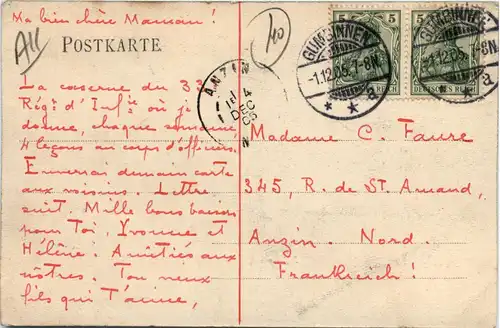 Ma bien chère Maman!
All
40
POSTKARTE
GUMBINNEN
-1.12.05.7-8N.
* * a
GUMBINNEN
-1.12.05.7-8N.
a
5 5
5 5
DEUTSCHES REICH
REICH
ANZIN
4
DEC
05
La caserne du 33
Régt d'Infie où je
donne, chaque semaine,
4 leçons au corps d'officiers.
Enverrai demain carte
aux voisins. Lettre
suit. Mille bons baisers
pour Toi, Yvonne et
Hélène! Amitiés aux
nôtres. Ton vieux
fils qui t'aime,
Madame C. Faure
345, R. de St. Amand,
Anzin. Nord.
Frankreich!